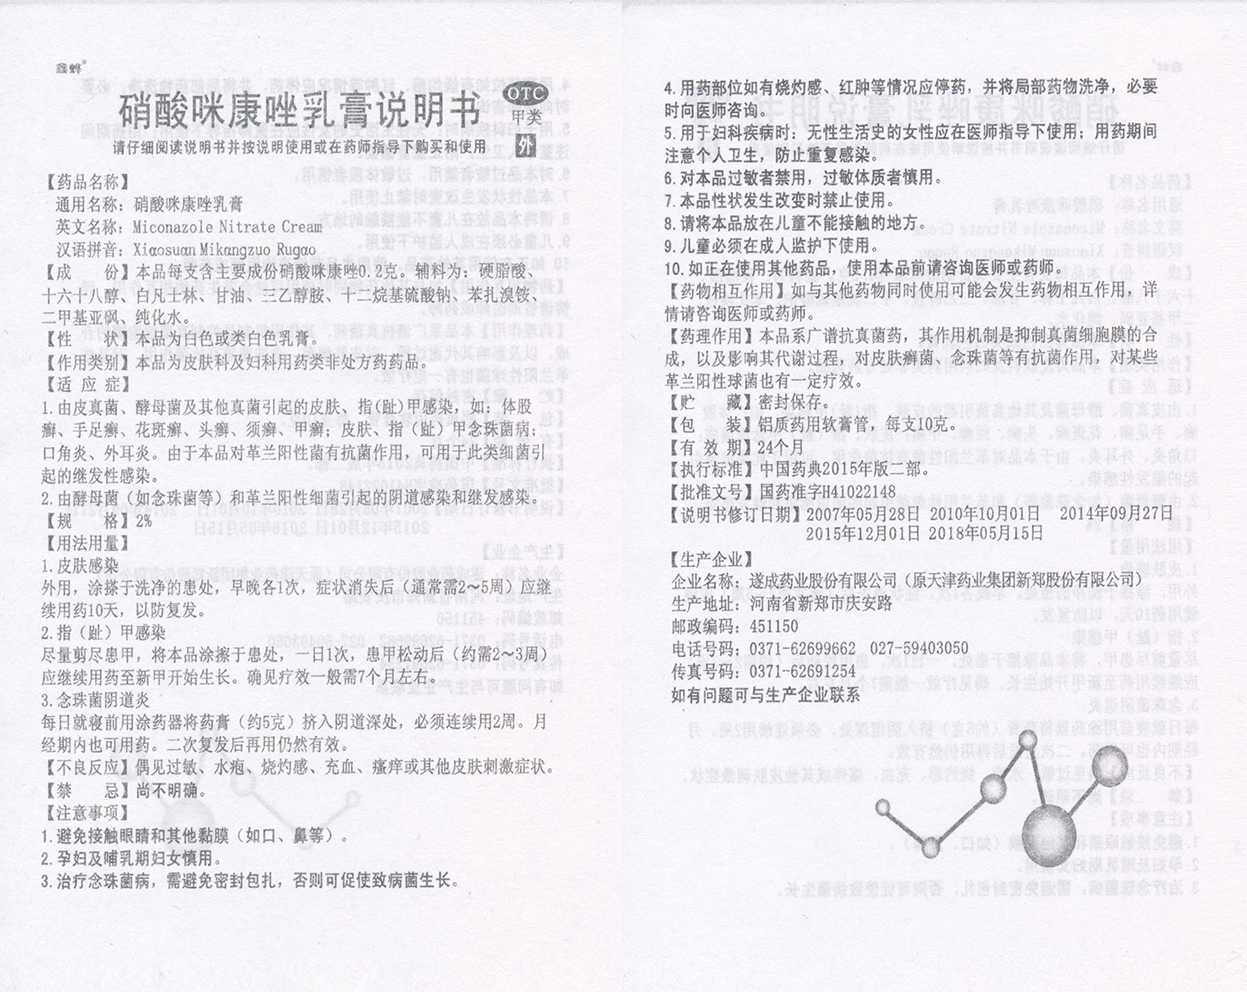 鑫烨
硝酸咪康唑乳膏说明书
OTC
甲类
外
请仔细阅读说明书并按说明使用或在药师指导下购买和使用
【药品名称】
通用名称：硝酸咪康唑乳膏
英文名称：Miconazole Nitrate Cream
汉语拼音：Xiaosuan Mikangzuo Rugao
【成　　份】本品每支含主要成份硝酸咪康唑0.2克。辅料为：硬脂酸、
十六十八醇、白凡士林、甘油、三乙醇胺、十二烷基硫酸钠、苯扎溴铵、
二甲基亚砜、纯化水。
【性　　状】本品为白色或类白色乳膏。
【作用类别】本品为皮肤科及妇科用药类非处方药药品。
【适 应 症】
1.由皮真菌、酵母菌及其他真菌引起的皮肤、指(趾)甲感染，如：体股
癣、手足癣、花斑癣、头癣、须癣、甲癣；皮肤、指（趾）甲念珠菌病；
口角炎、外耳炎。由于本品对革兰阳性菌有抗菌作用，可用于此类细菌引
起的继发性感染。
2.由酵母菌（如念珠菌等）和革兰阳性细菌引起的阴道感染和继发感染。
【规　　格】2%
【用法用量】
1.皮肤感染
外用，涂搽于洗净的患处，早晚各1次，症状消失后（通常需2～5周）应继
续用药10天，以防复发。
2.指（趾）甲感染
尽量剪尽患甲，将本品涂擦于患处，一日1次，患甲松动后（约需2～3周）
应继续用药至新甲开始生长。确见疗效一般需7个月左右。
3.念珠菌阴道炎
每日就寝前用涂药器将药膏（约5克）挤入阴道深处，必须连续用2周。月
经期内也可用药。二次复发后再用仍然有效。
【不良反应】偶见过敏、水疱、烧灼感、充血、瘙痒或其他皮肤刺激症状。
【禁　　忌】尚不明确。
【注意事项】
1.避免接触眼睛和其他黏膜（如口、鼻等）。
2.孕妇及哺乳期妇女慎用。
3.治疗念珠菌病，需避免密封包扎，否则可促使致病菌生长。
4.用药部位如有烧灼感、红肿等情况应停药，并将局部药物洗净，必要
时向医师咨询。
5.用于妇科疾病时：无性生活史的女性应在医师指导下使用；用药期间
注意个人卫生，防止重复感染。
6.对本品过敏者禁用，过敏体质者慎用。
7.本品性状发生改变时禁止使用。
8.请将本品放在儿童不能接触的地方。
9.儿童必须在成人监护下使用。
10.如正在使用其他药品，使用本品前请咨询医师或药师。
【药物相互作用】如与其他药物同时使用可能会发生药物相互作用，详
情请咨询医师或药师。
【药理作用】本品系广谱抗真菌药，其作用机制是抑制真菌细胞膜的合
成，以及影响其代谢过程，对皮肤癣菌、念珠菌等有抗菌作用，对某些
革兰阳性球菌也有一定疗效。
【贮　　藏】密封保存。
【包　　装】铝质药用软膏管，每支10克。
【有 效 期】24个月
【执行标准】中国药典2015年版二部。
【批准文号】国药准字H41022148
【说明书修订日期】2007年05月28日 2010年10月01日 2014年09月27日
2015年12月01日 2018年05月15日
【生产企业】
企业名称：遂成药业股份有限公司（原天津药业集团新郑股份有限公司）
生产地址：河南省新郑市庆安路
邮政编码：451150
电话号码：0371-62699662 027-59403050
传真号码：0371-62691254
如有问题可与生产企业联系